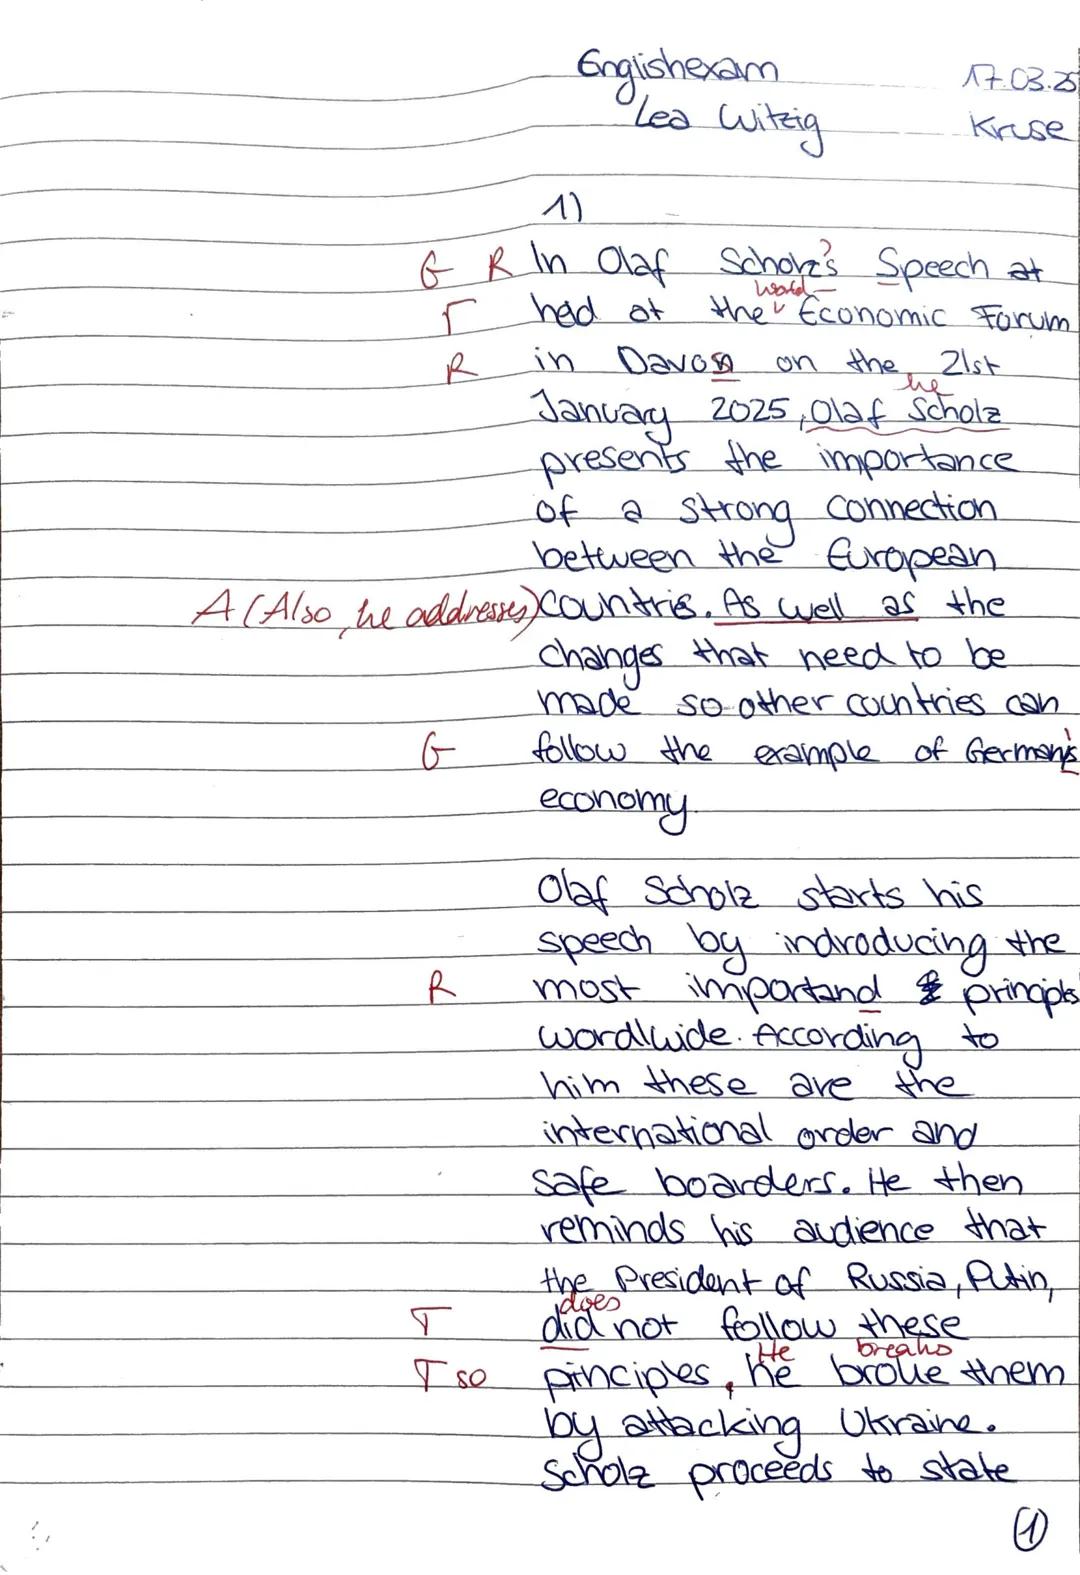 Englishexam 17.03.25
Lea Witzig Kruse
1)
G R In Olaf Scholz's Speech at
?
world
Γ hed at the Economic Forum
R in Davos on the 21st
he
January 2025, Olaf Scholz
presents the importance
of a strong connection
between the European
A (Also, he addresses) countris. As well as the
changes that need to be
made so other countries can
G follow the example of German's
economy.
Olaf Scholz starts his
speech by indroducing the
R most importand principls
wordlwide. According to
him these are the
international order and
safe boarders. He then
reminds his audience that
the President of Russia, Putin,
does
T did not follow these
He breaks
T so principles, he broke them
by attacking Ukraine.
Scholz proceeds to state
1